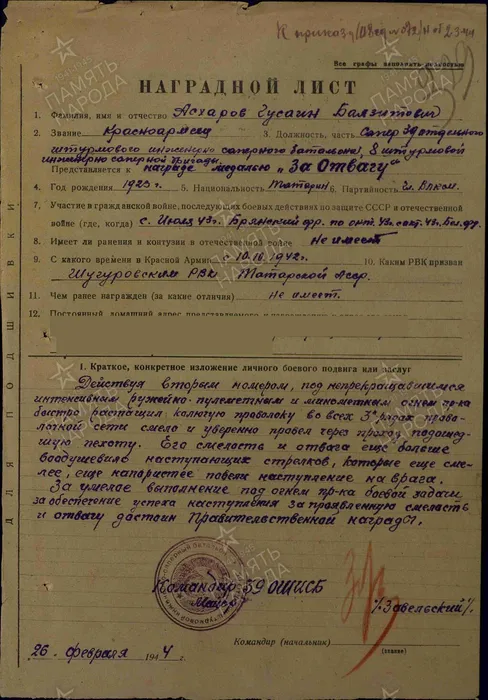 К приказу
Все графы заполнять полностью
НАГРАДНОЙ ЛИСТ
1. Фамилия, имя и отчество Асхаров Гусаин Баязитович
2. Звание Красноармеец 3. Должность, часть Сапер 39 отдельного
штурмового инженерно саперного батальона, 8 штурмовой
инженерно саперной бригады.
Представляется к награде медалью „За Отвагу“
4. Год рождения 1923 г. 5. Национальность Татарин 6. Партийность чл. ВЛКСМ.
7. Участие в гражданской войне, последующих боевых действиях по защите СССР и отечественной
войне (где, когда) с Июля 43 г. Брянский фр. по окт. 43 с окт. 43 Бел. фр.
8. Имеет ли ранения и контузии в отечественной войне Не имеет
9. С какого времени в Красной Армии с 10.16.1942 г. 10. Каким РВК призван
Шугуровским РВК Татарской Асср.
11. Чем ранее награжден (за какие отличия) Не имеет.
12. Постоянный домашний адрес
1. Краткое, конкретное изложение личного боевого подвига или заслуг
Действуя вторым номером, под непрекращавшимся
интенсивным ружейно-пулеметным и минометным огнем пр-ка
быстро растащил колючую проволоку во всех 3х рядах прово-
лочной сети смело и уверенно провел через проход подошед-
шую пехоту. Его смелость и отвага еще больше
воодушевило наступающих стрелков, которые еще сме-
лее, еще напористее повели наступление на врага.
За умелое выполнение под огнем пр-ка боевой задачи
за обеспечение успеха наступления за проявленную смелость
и отвагу достоин Правительственной награды.
Командир 39 ОШИСБ
Майор /Завельский/.
Командир (начальник)
(звание)
26 февраля 1944 г.
ДЛЯ ПОДШИВКИ
ПАМЯТЬ НАРОДА